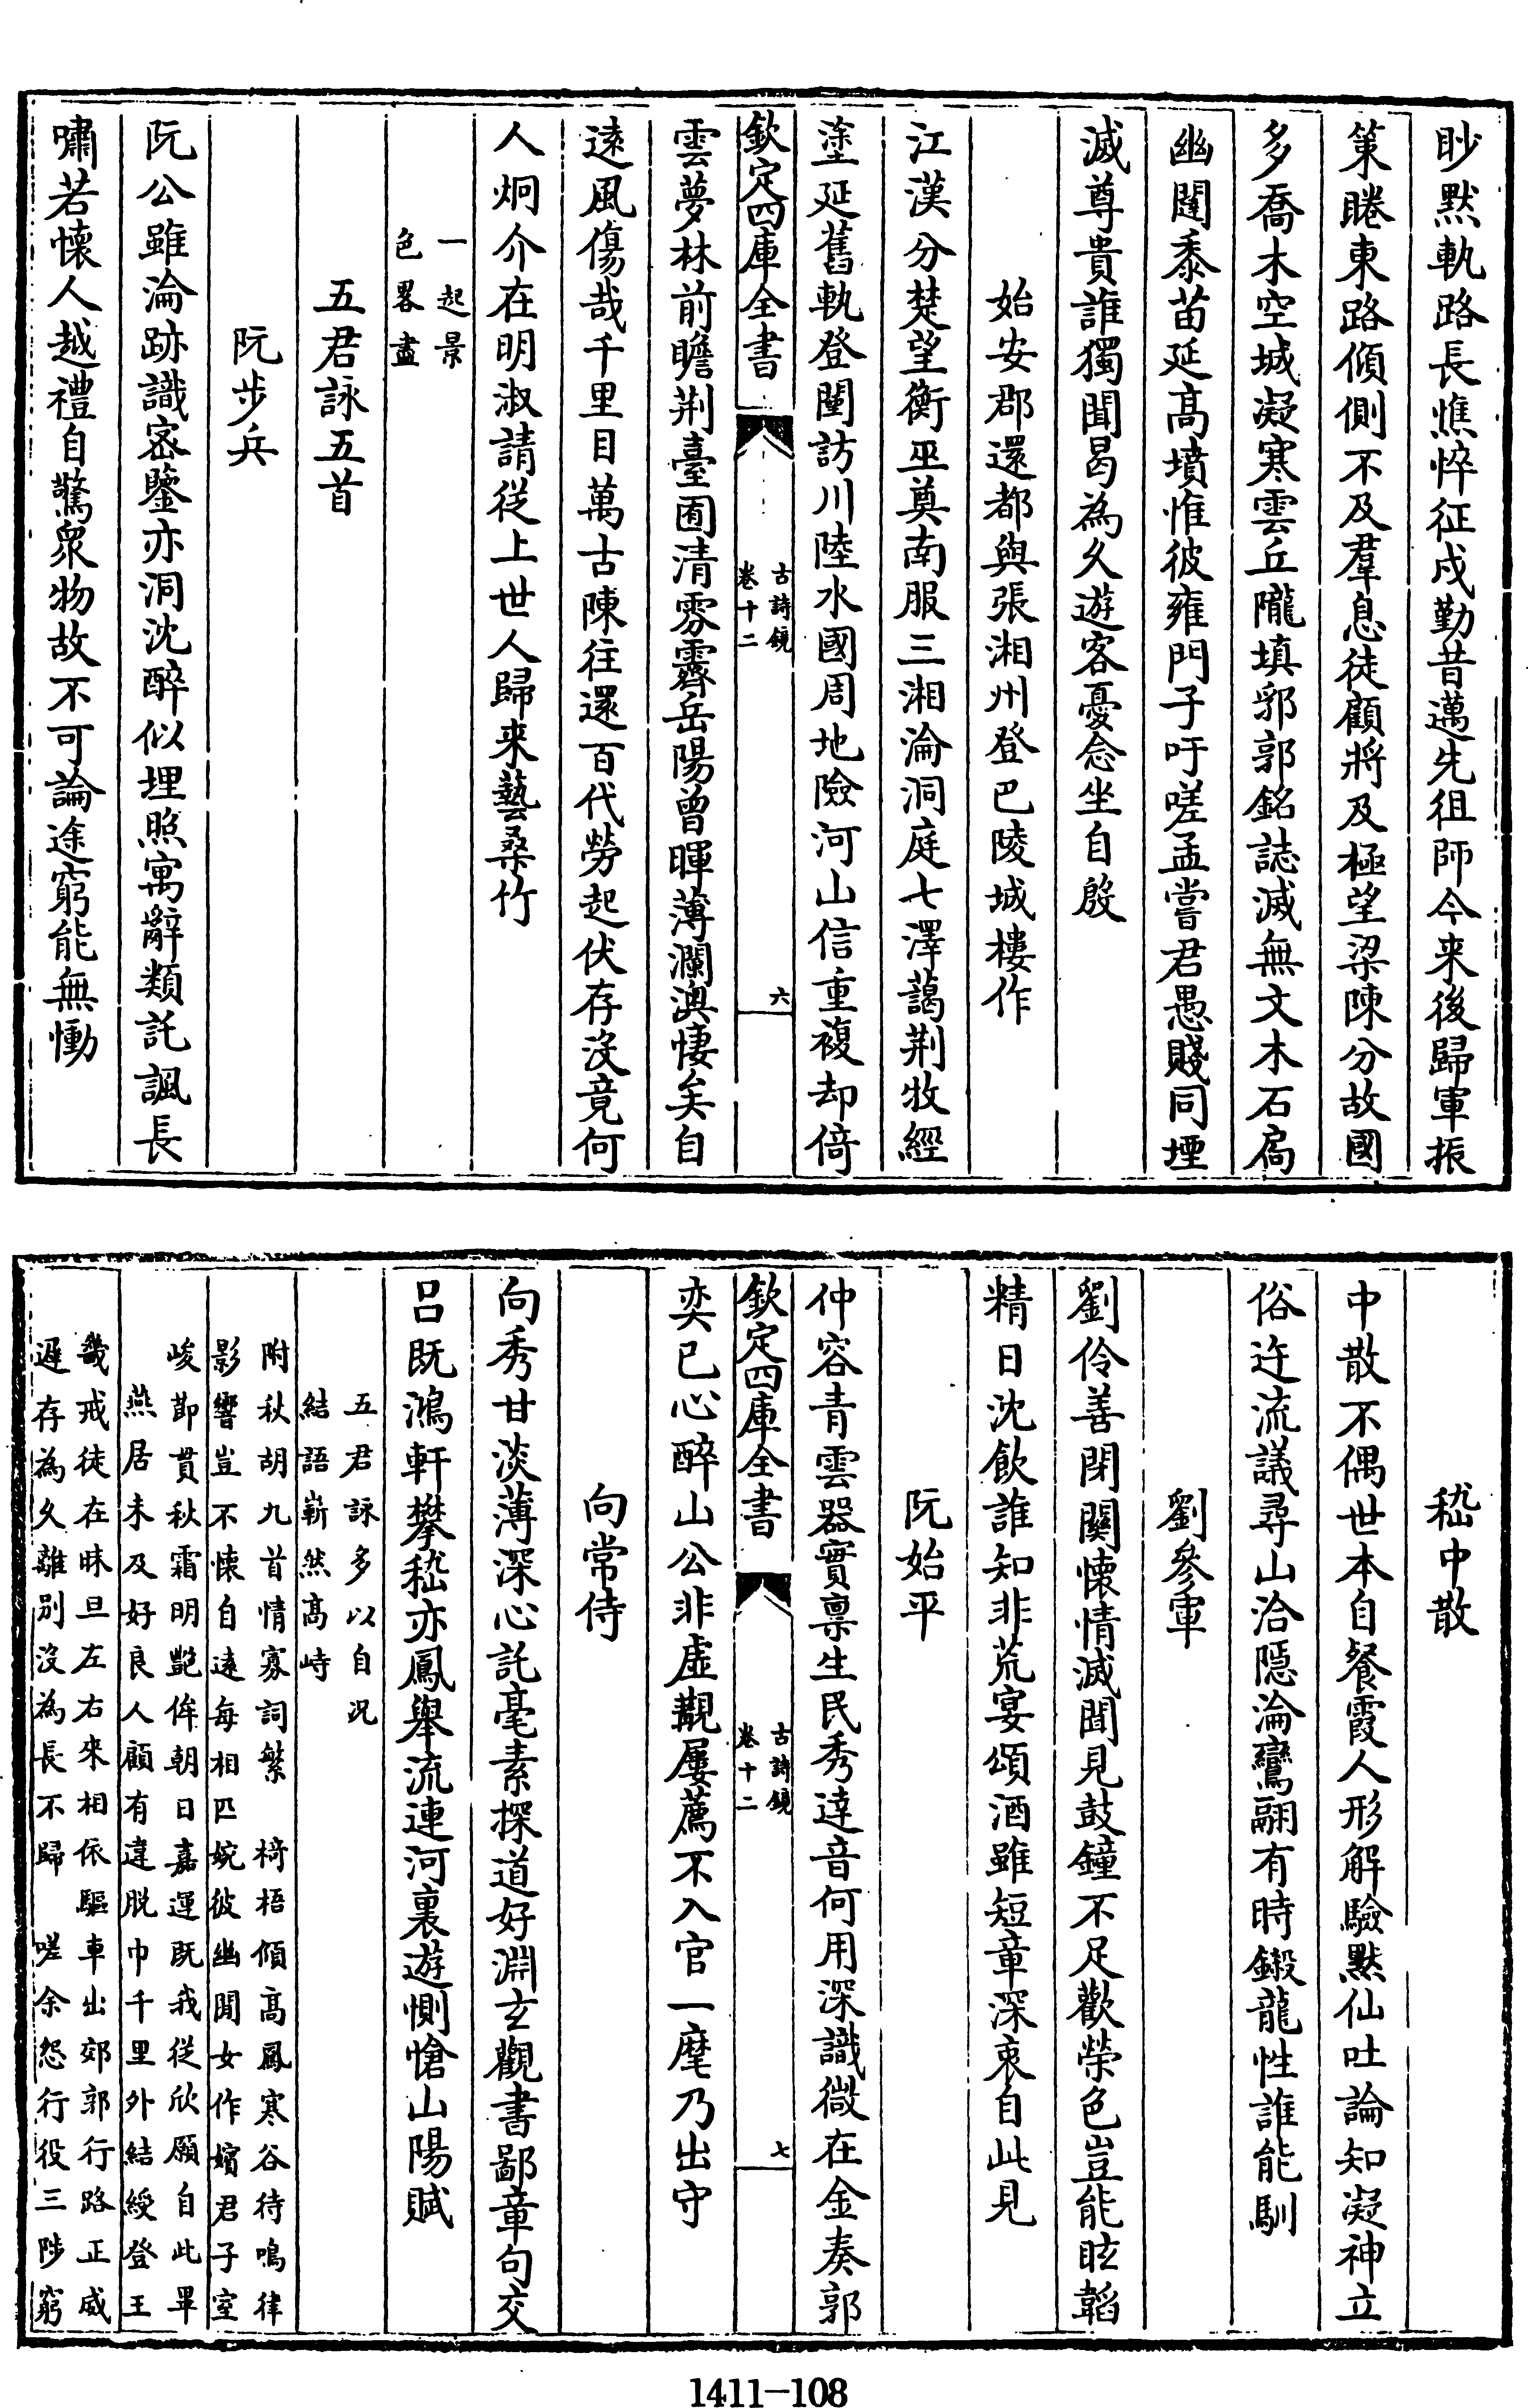 眇默軌路長憔悴征戍勤昔邁先徂師今来後歸軍振
策睠東路傾側不及羣息徒顧將及極望梁陳分故國
多喬木空城凝寒雲丘隴填郛郭銘誌滅無文木石扃
幽闥黍苗延高墳惟彼雍門子吁嗟孟嘗君愚賤同堙
滅尊貴誰獨聞曷為久遊客憂念坐自殷
始安郡還都與張湘州登巴陵城樓作
江漢分楚望衡巫奠南服三湘淪洞庭七澤藹荆牧經
塗延舊軌登闉訪川陸水國周地險河山信重複却倚
欽定四庫全書
古詩鏡
卷十二
六
雲夢林前瞻荆臺囿清雰霽岳陽曾暉薄瀾澳悽矣自
逺風傷哉千里目萬古陳往還百代勞起伏存沒竟何
人炯介在明淑請從上世人歸来藝桑竹
一起景
色畧盡
五君詠五首
阮步兵
阮公雖淪跡識宻鑒亦洞沈醉似埋照寓辭類託諷長
嘯若懷人越禮自驚衆物故不可論途窮能無慟
嵇中散
中散不偶世本自餐霞人形解驗默仙吐論知凝神立
俗迕流議尋山洽隱淪鸞翮有時鎩龍性誰能馴
劉參軍
劉伶善閉關懷情滅聞見鼓鐘不足歡榮色豈能眩韜
精日沈飲誰知非荒宴頌酒雖短章深衷自此見
阮始平
仲容青雲器實禀生民秀達音何用深識微在金奏郭
奕已心醉山公非虛觀屢薦不入官一麾乃出守
欽定四庫全書
古詩鏡
卷十二
七
向常侍
向秀甘淡薄深心託毫素探道好淵玄觀書鄙章句交
吕既鴻軒攀嵇亦鳳舉流連河裏遊惻愴山陽賦
五君詠多以自况
結語嶄然髙峙
附秋胡九首情寡詞繁　椅梧傾高鳳寒谷待鳴律
影響豈不懷自逺每相匹婉彼幽閒女作嬪君子室
峻節貫秋霜明艷侔朝日嘉運既我從欣願自此畢
燕居未及好良人顧有違脱巾千里外結綬登王
畿戒徒在昧旦左右來相依驅車出郊郭行路正威
遲存為久離別沒為長不歸　嗟余怨行役三陟窮
1411—108